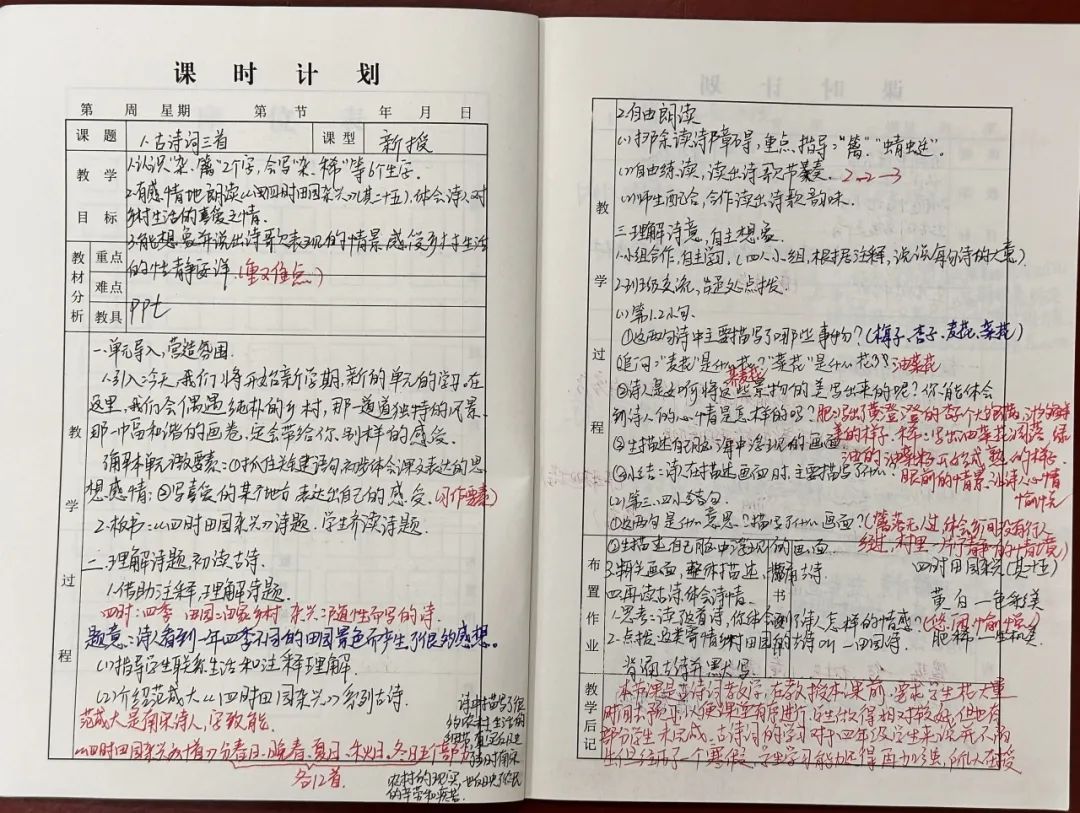 课时计划
第 周 星期 第 节 年 月 日
课题 1.古诗词三首 课型 新授
教学目标
1.认识"杂、篱"2个字,会写"杂、稀"等6个生字。
2.有感情地朗读《四时田园杂兴》(其二十五),体会诗人对
乡村生活的喜爱之情。
3.能想象并说出诗歌表现的情景,感受乡村生活
的恬静安详。(重又难点)
教材分析 重点 难点 教具
PPt
教学过程
一、单元导入,营造氛围.
1.引入:今天,我们将开始新学期,新的单元的学习,在
这里,我们会偶遇纯朴的乡村,那一道道独特的风景,
那一幅和谐的画卷,定会带给你别样的感受。
明确本单元语文要素:①抓住关键语句初步体会课文表达的思
想感情;②写喜爱的某个地方,表达出自己的感受。(习作要素)
2.板书:《四时田园杂兴》诗题.学生齐读诗题.
二、理解诗题,初读古诗
1.借助注释,理解诗题.
四时:四季 田园:田家乡村 杂兴:随性而写的诗.
题意:诗人看到一年四季不同的田园景色而产生了很多感想。
(1)指导学生联系生活和注释理解.
(2)介绍范成大《四时田园杂兴》系列古诗.
范成大是南宋诗人,字致能
《四时田园杂兴》分春日、晚春、夏日、秋日、冬日五个部分
各12首.
诗中描写了很
农村的现实,
2.自由朗读
(1)扫除读诗障碍,重点指导:"篱""蜻蜓"。
(2)自由练读,读出诗歌节奏美. 2—2—3
(3)师生配合,合作读出诗歌韵味.
三、理解诗意,自主想象.
1.小组合作,自主学习,(四人小组,根据注释,说说每句诗的大意)
2.班级交流,出疑处点拨.
(1)第1.2小句.
①这两句诗中主要描写了哪些事物?(梅子、杏子、麦花、菜花)
追问:"麦花"是什么花?"菜花"是什么花? 油菜花
荞麦花
②诗人是如何将这些景物的美写出来的呢?你能体会
到诗人的心情是怎样的吗?
②生描述自己脑海中浮现的画面.
③小结:诗人在描述画面时,主要描写了什么?
眼前的情景,让诗人心情
愉快
(2)第三、四小结句.
①这两句是什么意思?描写了什么画面?(篱落无人过,体会到间没有行人
经过,村里一片宁静的情境)
②生描述自己脑中浮现的画面.
3.聊关画面,整体描述,背诵古诗
四、再读古诗,体会诗情.
1.思考:读了这首诗,你体会到了诗人怎样的情感?(悠闲、愉悦)
2.点拨:这类寄情乡村田园的古诗叫—田园诗.
布置作业
背诵古诗并默写.
书
四时田园杂兴(其二十五)
黄 白 —色彩美
肥 稀 —生机美
教学后记
本节课是古诗词教学,在教授本课前,要求学生花大量
时间去预习,以便课堂有序进行.学生做得相对较好,但也有
部分学生未完成。古诗词的学习对于四年级学生来说并不陌
生,但经历了一个寒假,学生学习能力还得再加强,所以在授